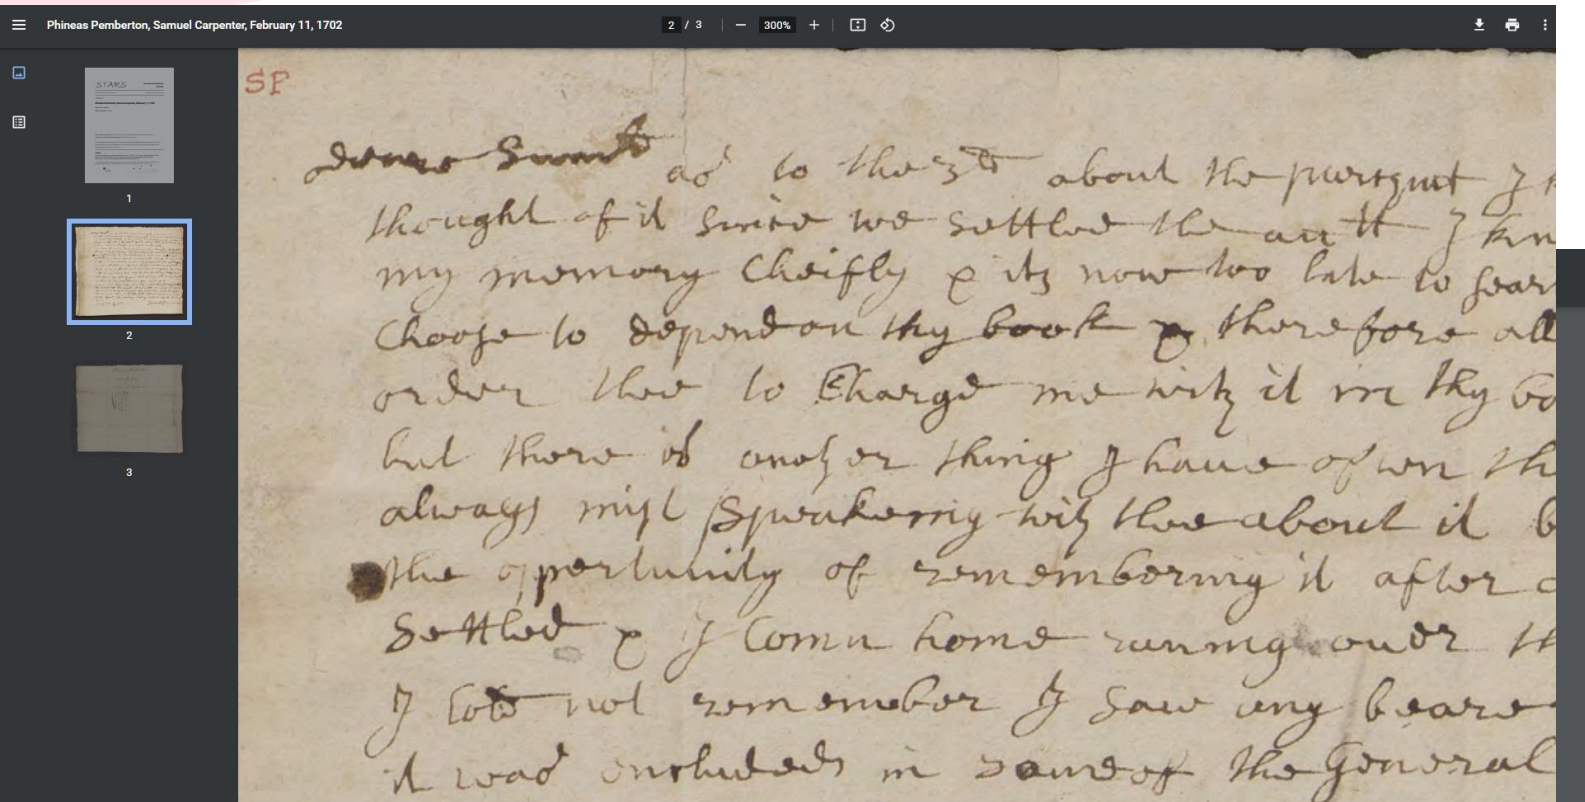 Phineas Pemberton, Samuel Carpenter, February 11, 1702
2 / 3
300%
STARS
1
2
3
SP
as to the 3d about the I
thought of it since we settled the I kn
my memory Cheifly & its now too late to sear
Choose to depend on thy book & therefore all
order thee to Charge me with it in thy bo
but there is another thing I have often th
always mist Speakeing with thee about it b
the opportunity of remembering it after a
Settled & I Comn home runing over th
I not remember I saw any beare
it was in some of the General